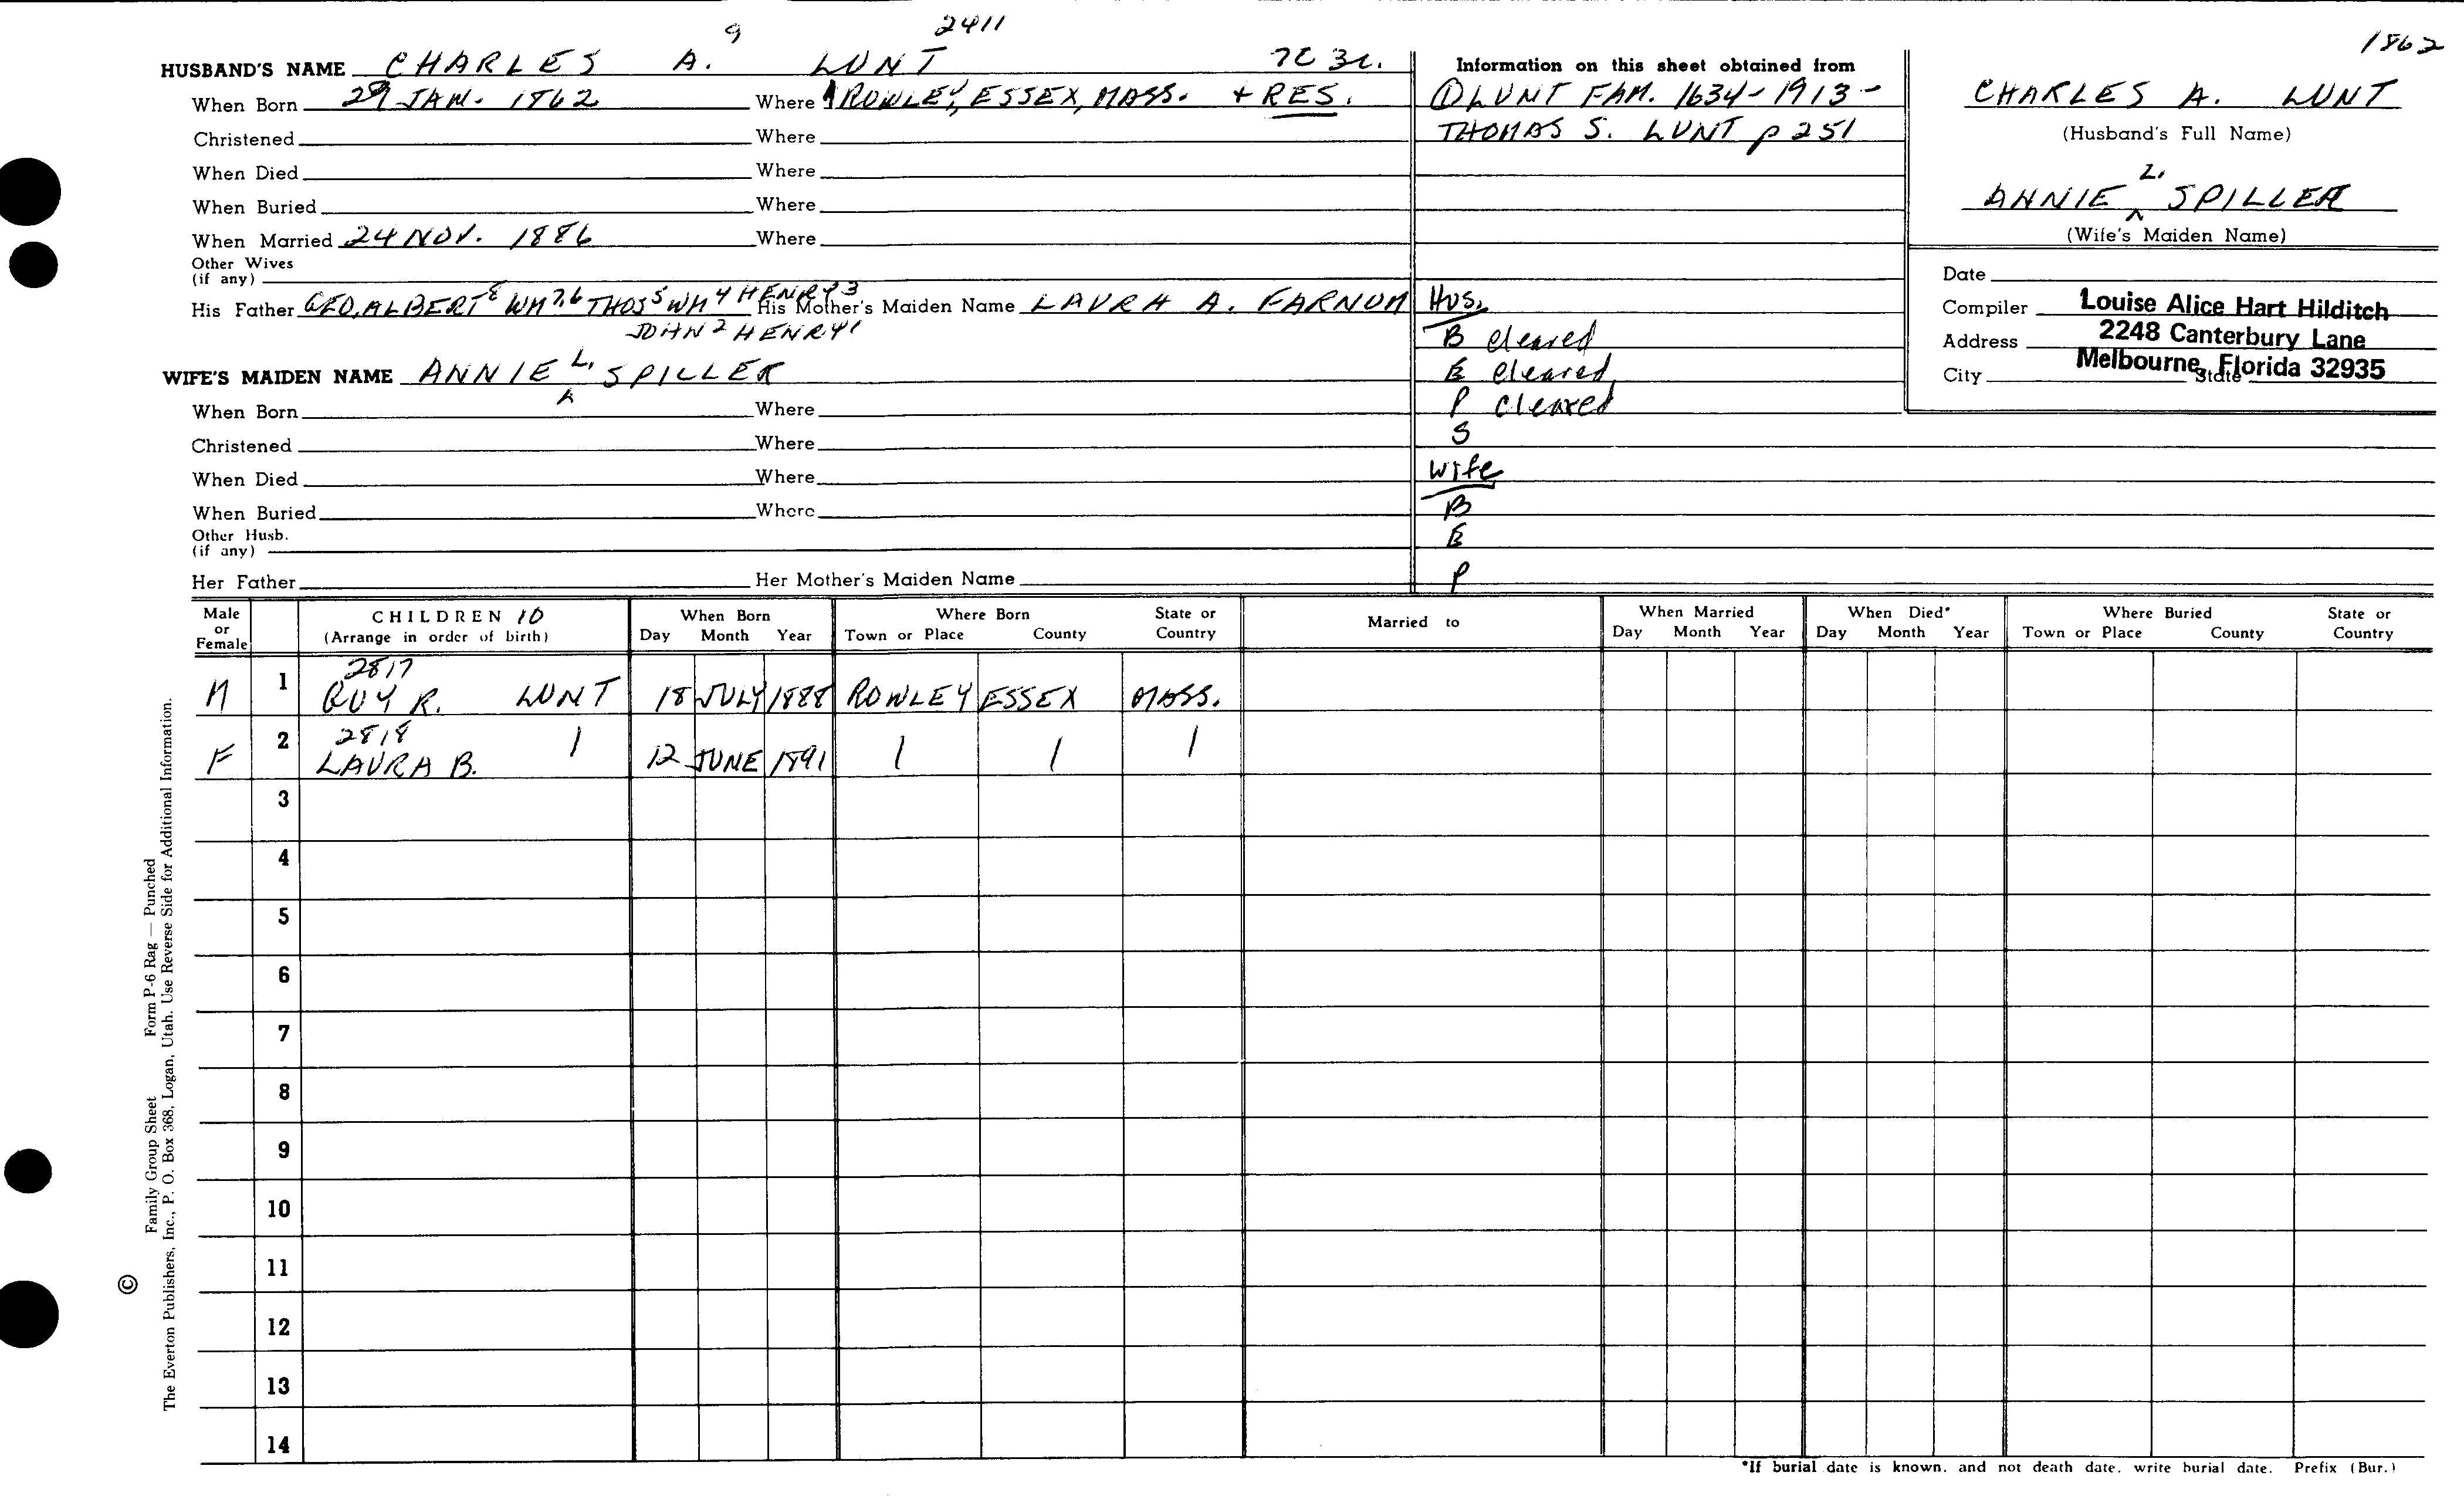 9 2411 1862
HUSBAND'S NAME CHARLES A. LUNT 7C 3L.
When Born 29 JAN. 1862 Where 1 ROWLEY, ESSEX, MASS. + RES.
Christened Where
When Died Where
When Buried Where
When Married 24 NOV. 1886 Where
Other Wives
(if any)
His Father GEO. ALBERT 8 WM 7,6 THOS 5 WM 4 HENRY 3 His Mother's Maiden Name LAURA A. FARNUM
JOHN 2 HENRY 1
WIFE'S MAIDEN NAME ANNIE L. SPILLER
When Born Where
Christened Where
When Died Where
When Buried Where
Other Husb.
(if any)
Her Father Her Mother's Maiden Name
Information on this sheet obtained from
① LUNT FAM. 1634-1913-
THOMAS S. LUNT p 251
HUS.
B cleared
E cleared
P cleared
S
Wife
B
E
P
CHARLES A. LUNT
(Husband's Full Name)
ANNIE L. SPILLER
(Wife's Maiden Name)
Date
Compiler Louise Alice Hart Hilditch
Address 2248 Canterbury Lane
City State Melbourne, Florida 32935
Male or Female CHILDREN 10 (Arrange in order of birth) When Born Day Month Year Where Born Town or Place County State or Country Married to When Married Day Month Year When Died* Day Month Year Where Buried Town or Place County State or Country
2817
M 1 GUY R. LUNT 18 JULY 1888 ROWLEY ESSEX MASS.
2818
F 2 LAURA B. | 12 JUNE 1891 | | |
3
4
5
6
7
8
9
10
11
12
13
14
*If burial date is known, and not death date, write burial date. Prefix (Bur.)
© Family Group Sheet Form P-6 Rag — Punched
The Everton Publishers, Inc., P. O. Box 368, Logan, Utah. Use Reverse Side for Additional Information.